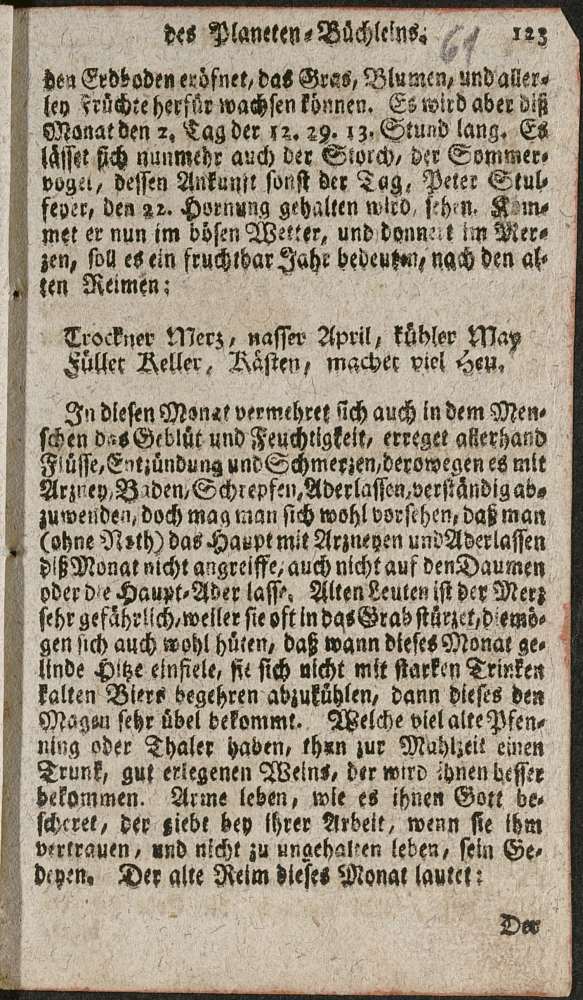 des Planeten-Büchleins. 61 123
den Erdboden eröfnet, das Gras, Blumen, und aller-
ley Früchte herfür wachsen können. Es wird aber diß
Monat den 2. Tag der 12. 29. 13. Stund lang. Es
lässet sich nunmehr auch der Storch, der Sommer-
vogel, dessen Ankunft sonst der Tag, Peter Stul-
feyer, den 22. Hornung gehalten wird, sehen. Kom-
met er nun im bösen Wetter, und donnert im Mer-
zen, soll es ein fruchtbar Jahr bedeuten, nach den al-
ten Reimen:
Trockner Merz, nasser April, kühler May
Füllet Keller, Kästen, machet viel Heu.
In diesen Monat vermehret sich auch in dem Men-
schen das Geblüt und Feuchtigkeit, erreget allerhand
Flüsse, Entzündung und Schmerzen, derowegen es mit
Arzney, Baden, Schrepfen, Aderlassen, verständig ab-
zuwenden, doch mag man sich wohl vorsehen, daß man
(ohne Noth) das Haupt mit Arzneyen und Aderlassen
diß Monat nicht angreiffe, auch nicht auf den Daumen
oder die Haupt-Ader lasse. Alten Leuten ist der Merz
sehr gefährlich, weiler sie oft in das Grab stürzet, die mö-
gen sich auch wohl hüten, daß wann dieses Monat ge-
linde Hitze einfiele, sie sich nicht mit starken Trinken
kalten Biers begehren abzukühlen, dann dieses den
Magen sehr übel bekommt. Welche viel alte Pfen-
ning oder Thaler haben, thun zur Mahlzeit einen
Trunk, gut erlegenen Weins, der wird ihnen besser
bekommen. Arme leben, wie es ihnen Gott be-
scheret, der giebt bey ihrer Arbeit, wenn sie ihm
vertrauen, und nicht zu ungehalten leben, sein Ge-
deyen. Der alte Reim dieses Monat lautet:
Der